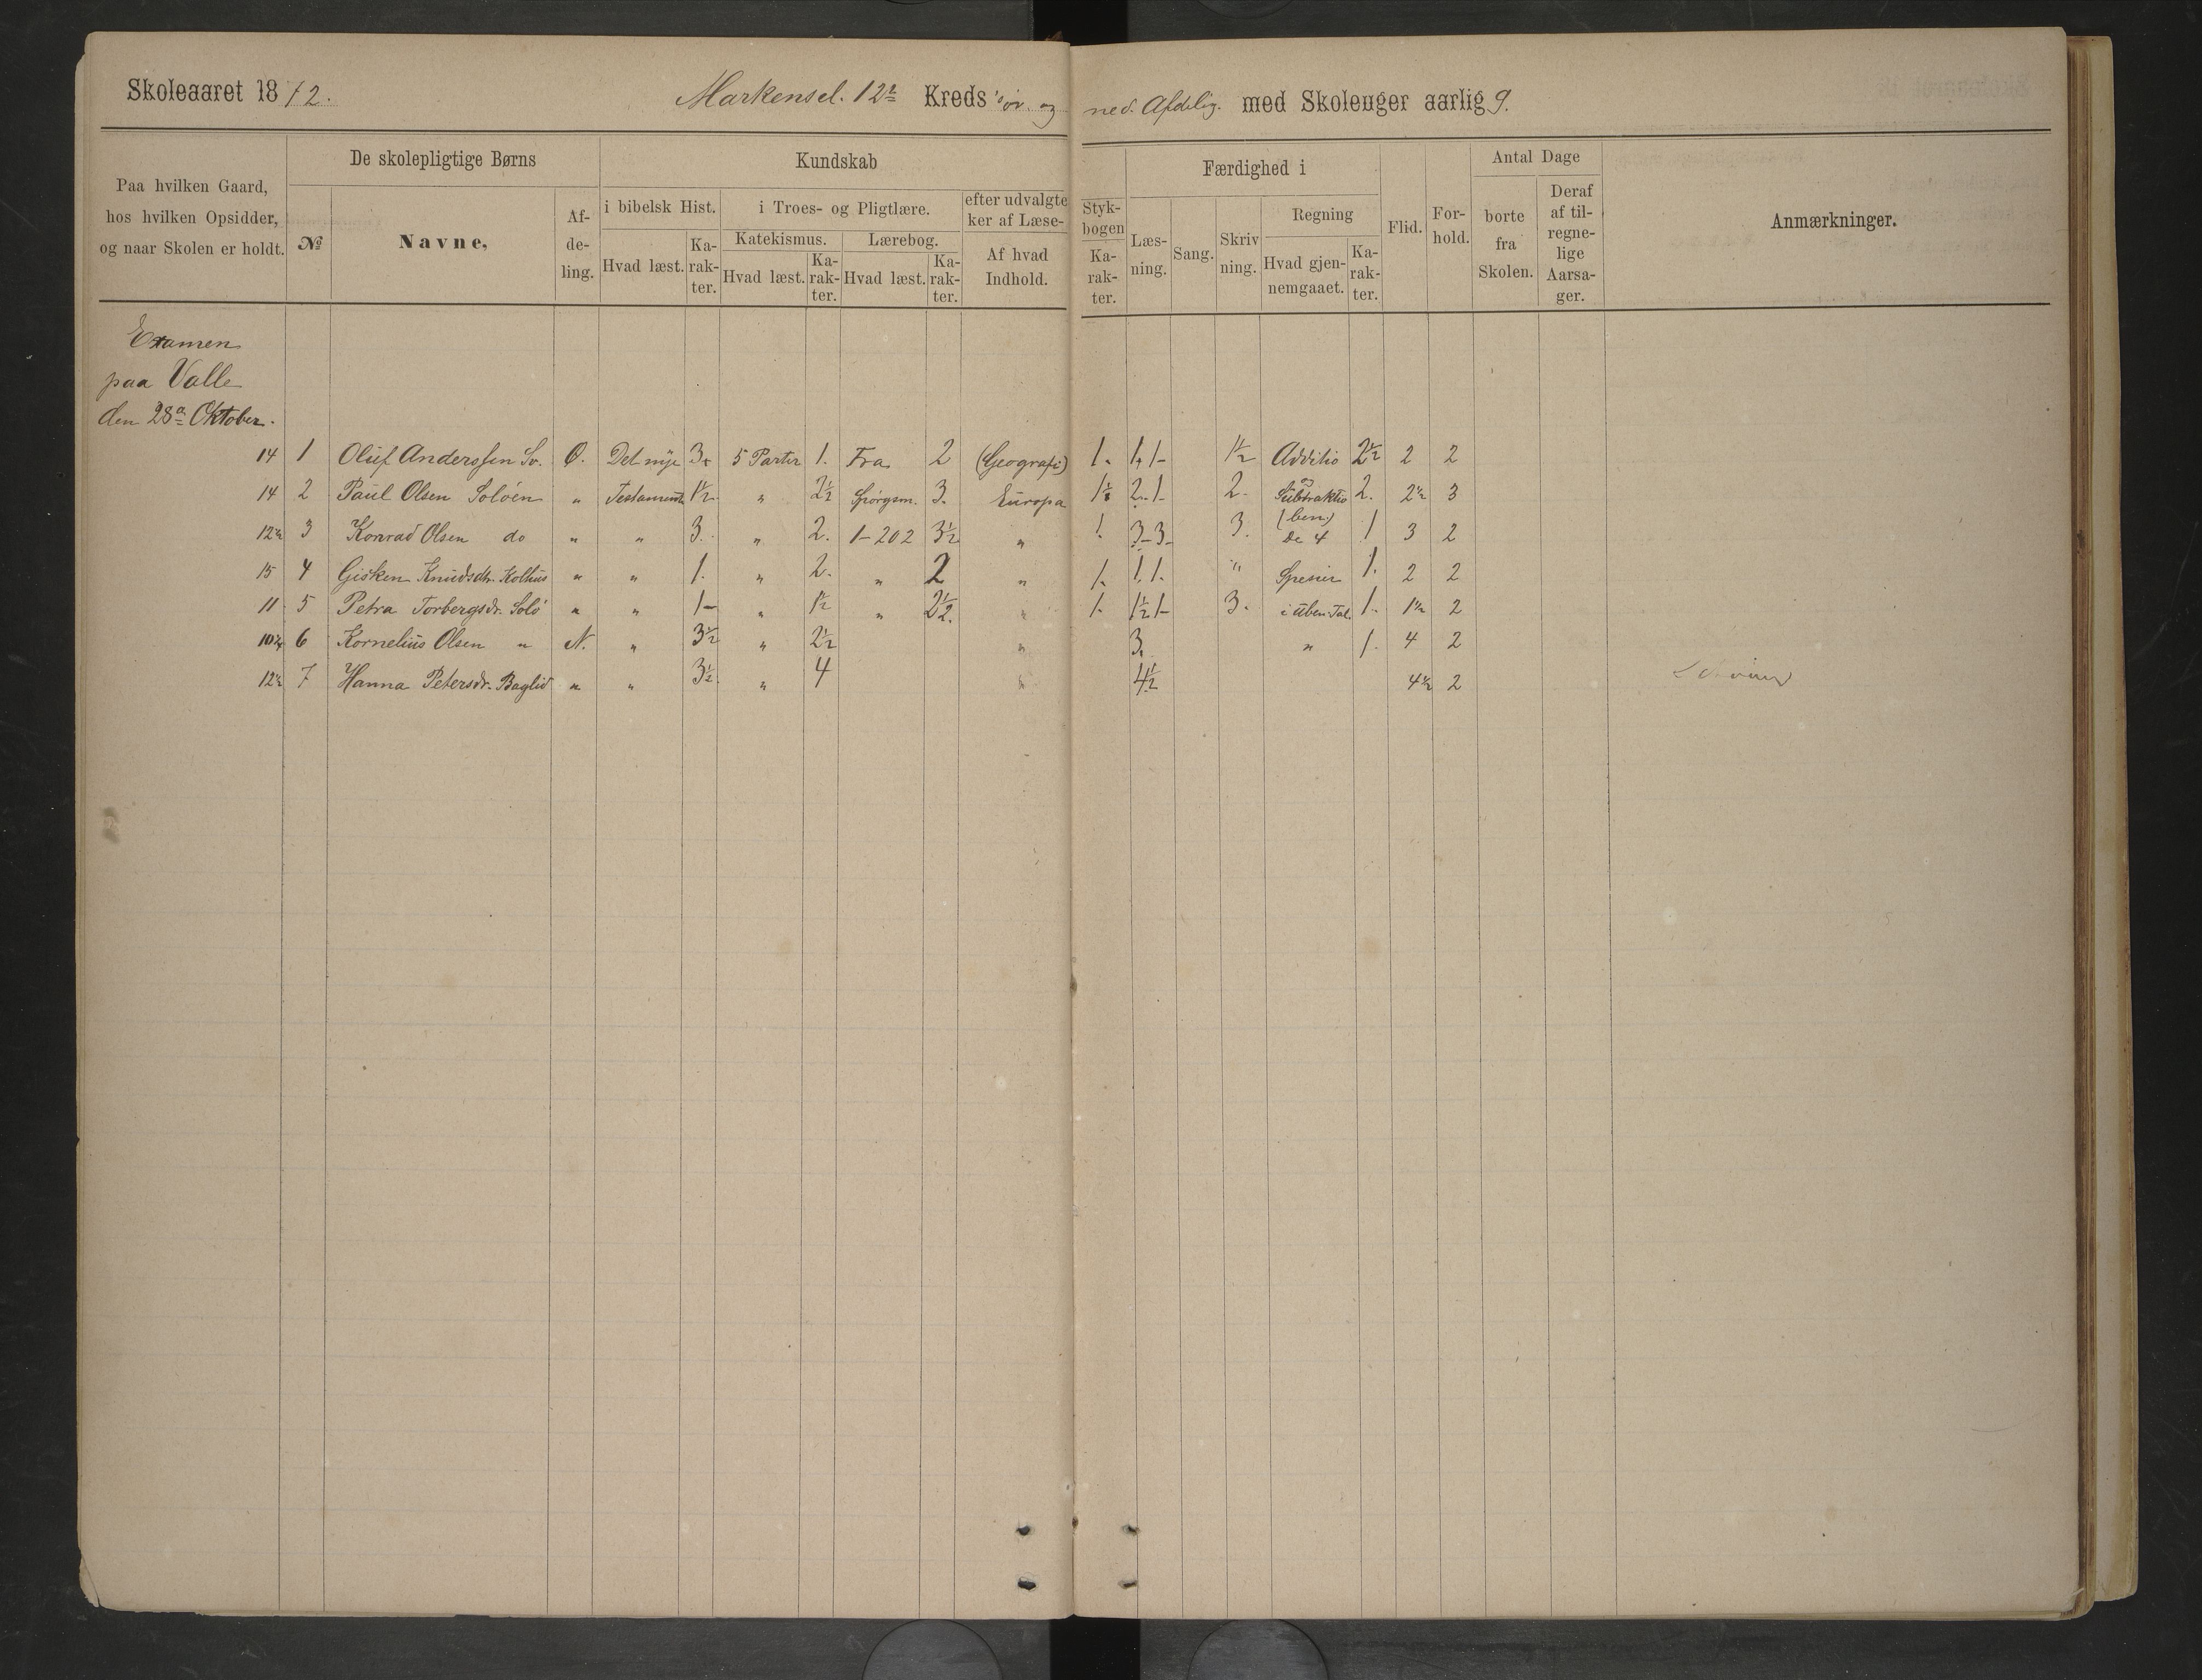 Skoleaaret 1872. Markensel. 12te Kreds øv. og ned. Afdeling. med Skoleuger aarlig 9.
Paa hvilken Gaard, hos hvilken Opsidder, og naar Skolen er holdt.
De skolepligtige Børns
No Navne, Afdeling.
Kundskab
i bibelsk Hist. i Troes- og Pligtlære. efter udvalgte Stykker af Læsebogen
Katekismus. Lærebog.
Hvad læst. Karakter. Hvad læst. Karakter. Hvad læst. Karakter. Af hvad Indhold. Karakter.
Færdighed i
Læsning. Sang. Skrivning. Regning
Hvad gjennemgaaet. Karakter.
Flid. Forhold.
Antal Dage
borte fra Skolen. Deraf af tilregnelige Aarsager.
Anmærkninger.
Examen
paa Valle
den 28de Oktober.
14 1 Oluf Anderssen Sv. Ø. Det nye 3+ 5 Parter 1. Fra 2 (Geografi) 1. 1, 1- 1½ Additio 2½ 2 2
14 2 Paul Olsen Soløen " Testament 1½. " 2½ Spørgsm. 3. Europa 1½ 2. 1- 2. og Subtraktio 2. 2½ 3
12½ 3 Konrad Olsen do " " 3. " 2. 1-202 3½ " 1. 3- 3- 3. (ben.) De 4 1 3 2
15 4 Gisken Knudsdtr. Kolhus " " 1. " 2. " 2 " 1. 1. 1. " Spesier 1. 2 2
11 5 Petra Torbergsdr. Solø " " 1- " 1½ " 2½. " 1. 1½ 1- 3. i uben. Tal. 1. 1½ 2
10¾ 6 Kornelius Olsen " N. " 3½ " 2½ " 3. " 1. 4 2
12½ 7 Hanna Petersdr. Baglid " " 3½. " 4 " 4½ 4½ 2